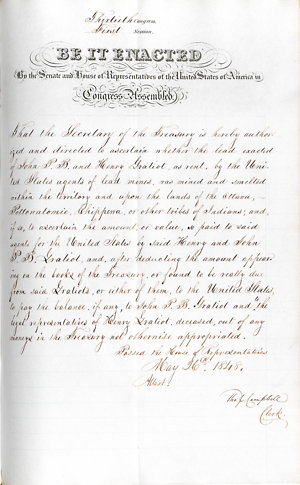 Thirtieth Congress,
First Session,
BE IT ENACTED
By the Senate and House of Representatives of the United States of America in
Congress Assembled
That the Secretary of the Treasury is hereby author
ized and directed to ascertain whether the lead exacted
of John P. B. and Henry Gratiot, as rent, by the Uni
ted States agents of lead mines, was mined and smelted
within the territory and upon the lands of the Ottawa,
Pottowatomie, Chippewa, or other tribes of Indians; and,
if so, to ascertain the amount, or value, so paid to said
agents for the United States by said Henry and John
P. B. Gratiot, and, after deducting the amount appear
ing on the books of the Treasury, or found to be really due
from said Gratiots, or either of them, to the United States,
to pay the balance, if any, to John P. B. Gratiot and the
legal representatives of Henry Gratiot, deceased, out of any
moneys in the Treasury not otherwise appropriated.
Passed the House of Representatives
May 26th, 1848.
Attest
Tho J Campbell
Clerk.